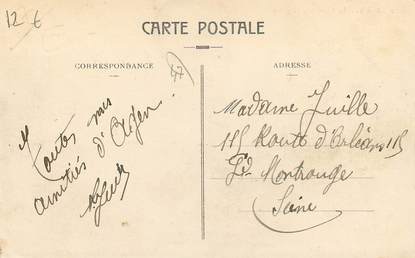 12 €
CARTE POSTALE
CORRESPONDANCE
ADRESSE
Toutes mes
amitiés d'Agen.
Madame Juille
115 Route d'Orléans 115
Gd Montrouge
Seine